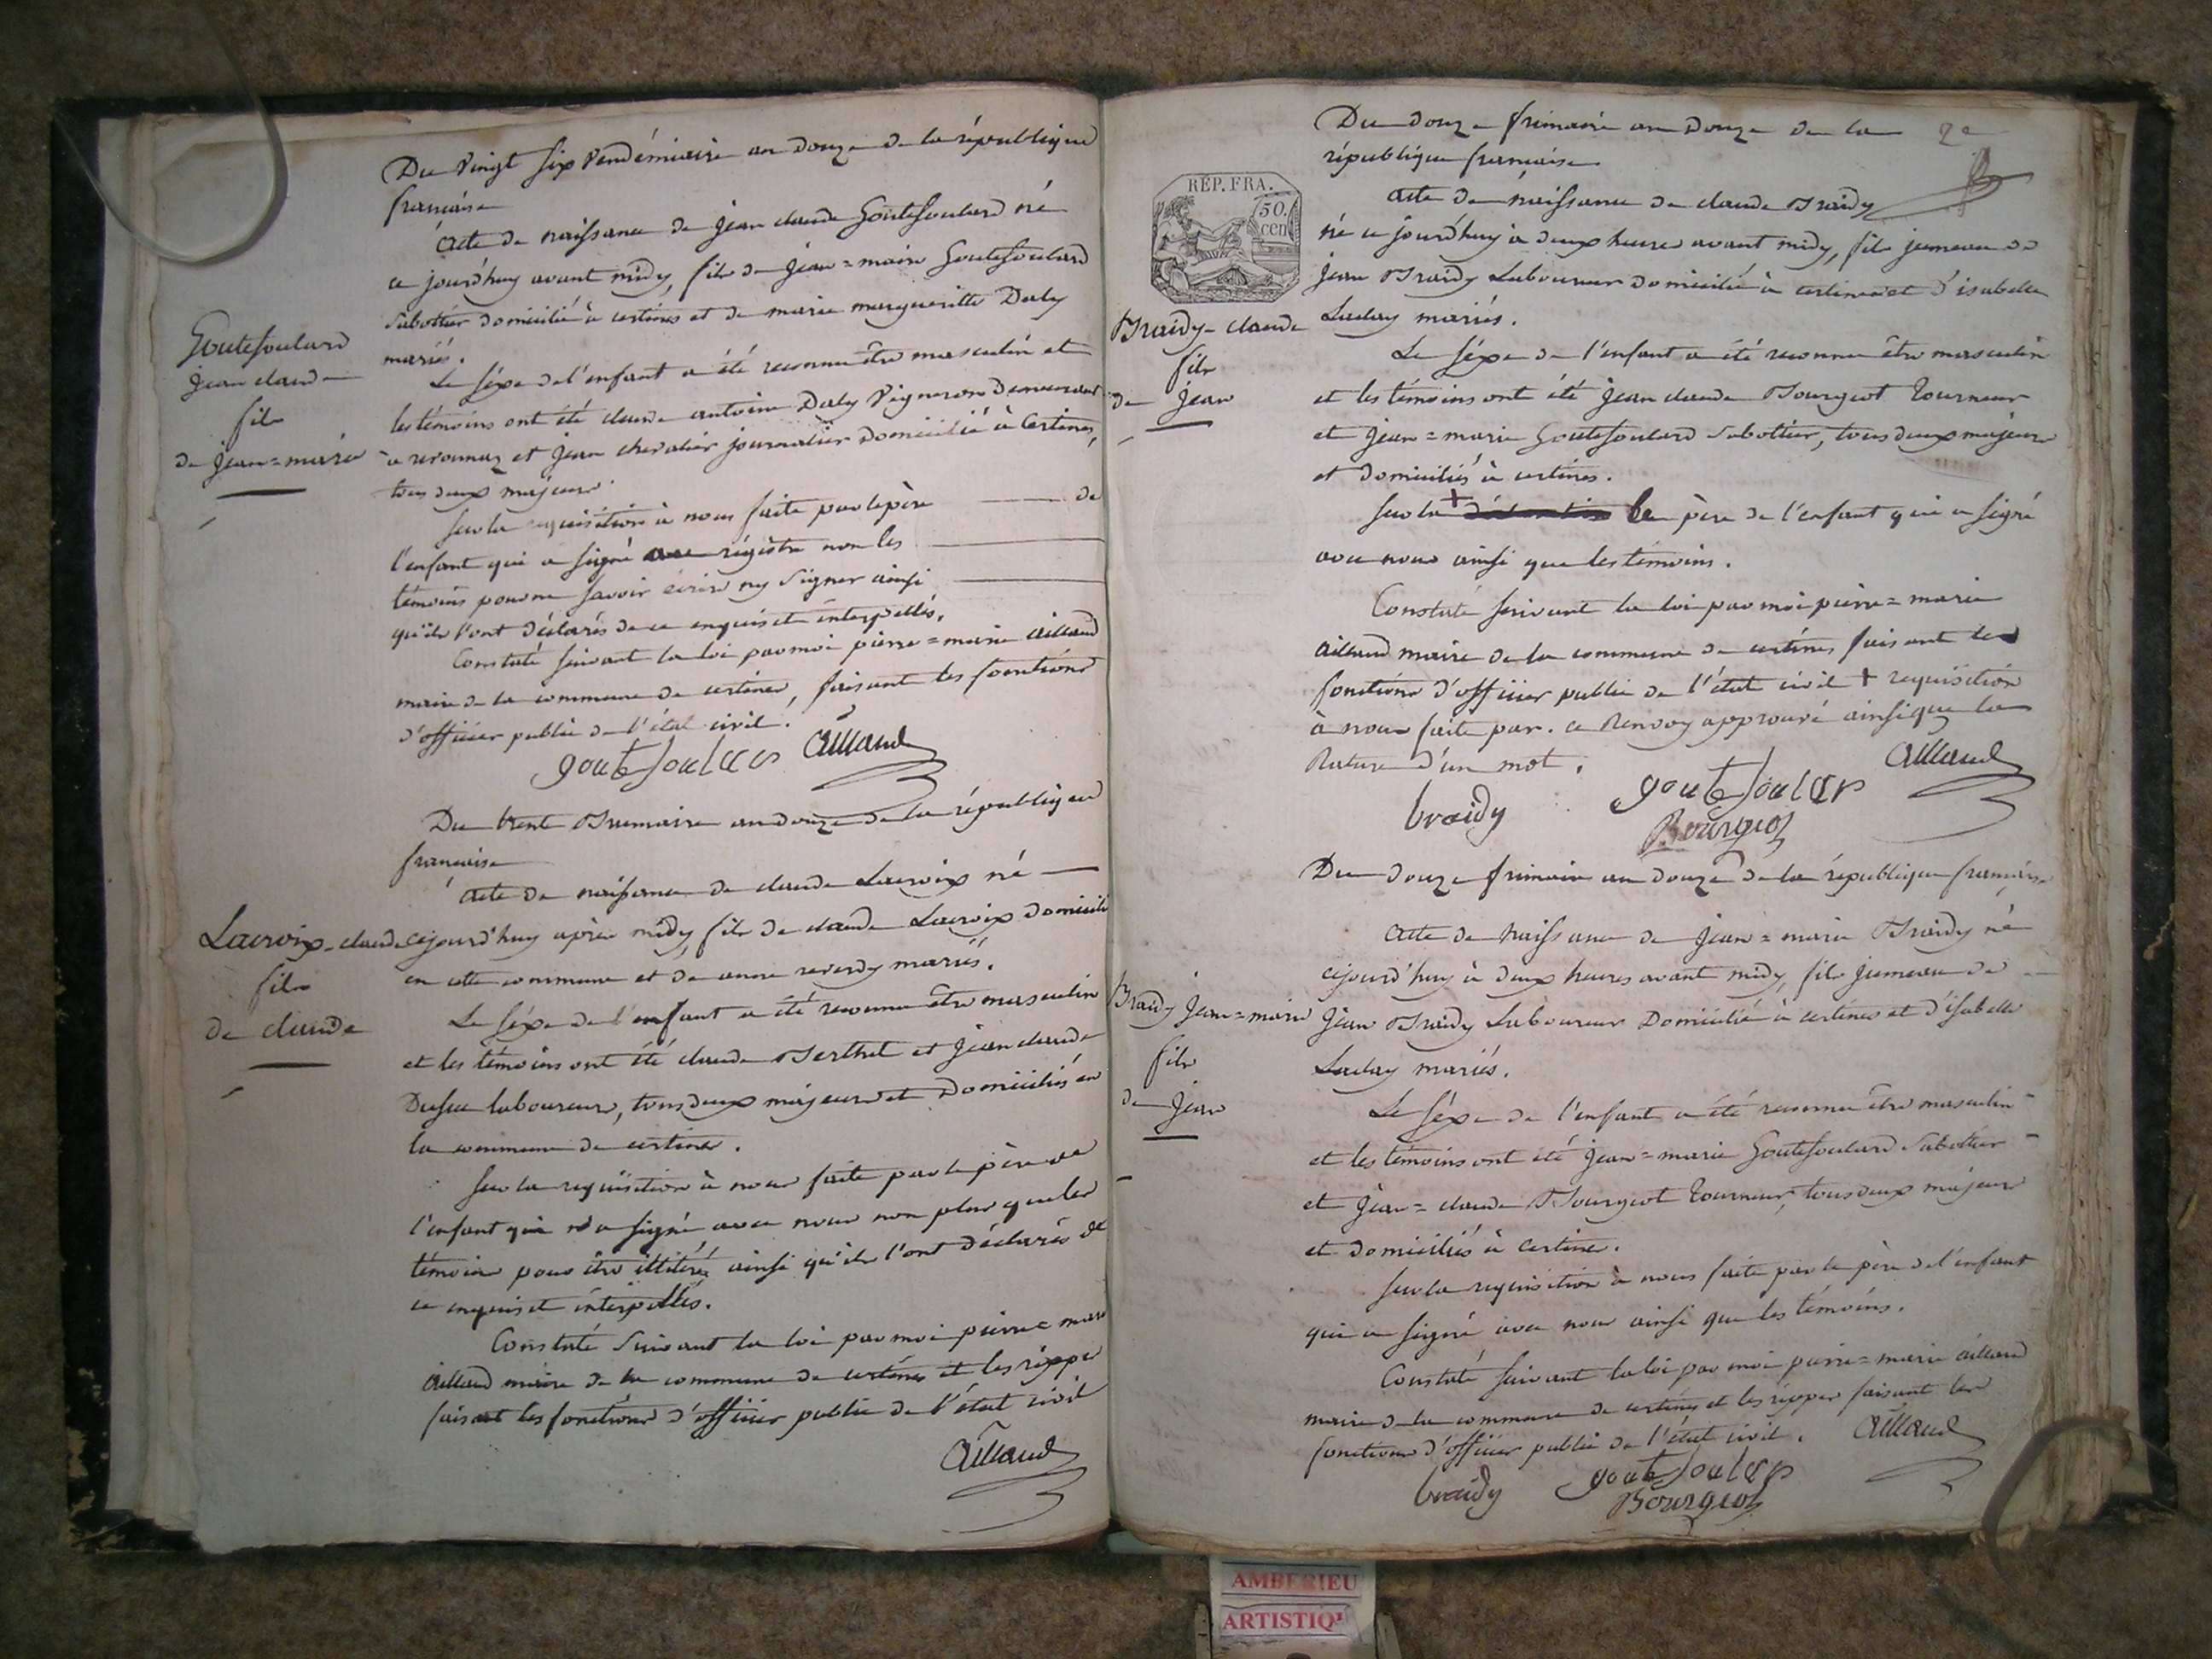 Du Vingt six Vendémiaire an douze de la république
française
acte de naissance de Jean claude Goutesoulard né
ce jourd'huy avant midy, fils de Jean=marie Goutesoulard
Sabottier domicilié à certines et de marie margueritte Daly
mariés.
Goutesoulard
Jean claude
fils
de Jean=marie
Le séxe de l'enfant a été reconnu être masculin et
les témoins ont été claude antoine Daly Vigneron demeurant
à revonnaz et Jean chevalier journalier domicilié à Certines,
tous deux majeurs.
sur la requisition à nous faite par le père de
l'enfant qui a signé au régistre non les
témoins pour ne savoir écrire ny signer ainsi
qu'ils l'ont déclarés de ce enquis et interpellés.
Constaté suivant la loi par moi pierre=marie aillaud
maire de la commune de certines, faisant les fonctions
d'officier public de l'état civil.
goutesoular aillaud
Du trente Brumaire an douze de la république
française
acte de naissance de claude Lacroix né
cejourd'huy après midy, fils de claude Lacroix domicilié
en cette commune et de anne reverdy mariés.
Lacroix-claude
fils
de claude
Le séxe de l'enfant a été reconnu être masculin
et les témoins ont été claude Berthet et Jean claude
Dufeu laboureurs, tous deux majeurs et domiciliés en
la commune de certines.
sur la requisition à nous faite par le père de
l'enfant qui n'a signé avec nous non plus que les
témoins pour être illitérés ainsi qu'ils l'ont déclarés de
ce enquis et interpellés.
Constaté Suivant la loi par moi pierre marie
aillaud maire de la commune de certines et les rippes
faisant les fonctions d'officier public de l'état civil
aillaud
Du douze frimaire an douze de la 2e
république française
REP. FRA.
50.
cen
acte de naissance de claude Braidy
né ce jourd'huy à deux heures avant midy, fils jumeau de
jean Braidy Laboureur domicilié à certines et d'isabelle
Luday mariés.
Braidy-claude
fils
de Jean
Le séxe de l'enfant a été reconnu être masculin
et les témoins ont été Jean claude Bourgeot Tourneur
et Jean=marie Goutesoulard Sabottier, tous deux majeurs
et domiciliés à certines.
sur la + le père de l'enfant qui a signé
avec nous ainsi que les témoins.
Constaté suivant la loi par moi pierre=marie
aillaud maire de la commune de certines faisant les
fonctions d'officier public de l'état civil + requisition
à nous faite par. ce Renvoy approuvé ainsi que la
Rature d'un mot.
aillaud
braidy goutesoular
Bourgeot
Du douze frimaire an douze de la république française
acte de naissance de Jean=marie Braidy né
cejourd'huy à deux heures avant midy, fils jumeau de
Jean Braidy Laboureur Domicilié à certines et d'isabelle
Luday mariés.
Braidy Jean=marie
fils
de Jean
Le séxe de l'enfant a été reconnu être masculin
et les témoins ont été Jean=marie Goutesoulard Sabottier
et Jean=claude Bourgeot Tourneur, tous deux majeurs
et domiciliés à certines.
sur la requisition à nous faite par le père de l'enfant
qui a signé avec nous ainsi que les témoins.
Constaté suivant la loi par moi pierre=marie aillaud
maire de la commune de certines et les rippes faisant les
fonctions d'officier public de l'état civil. aillaud
braidy goutesoular
Bourgeot
AMBERIEU
ARTISTIQ